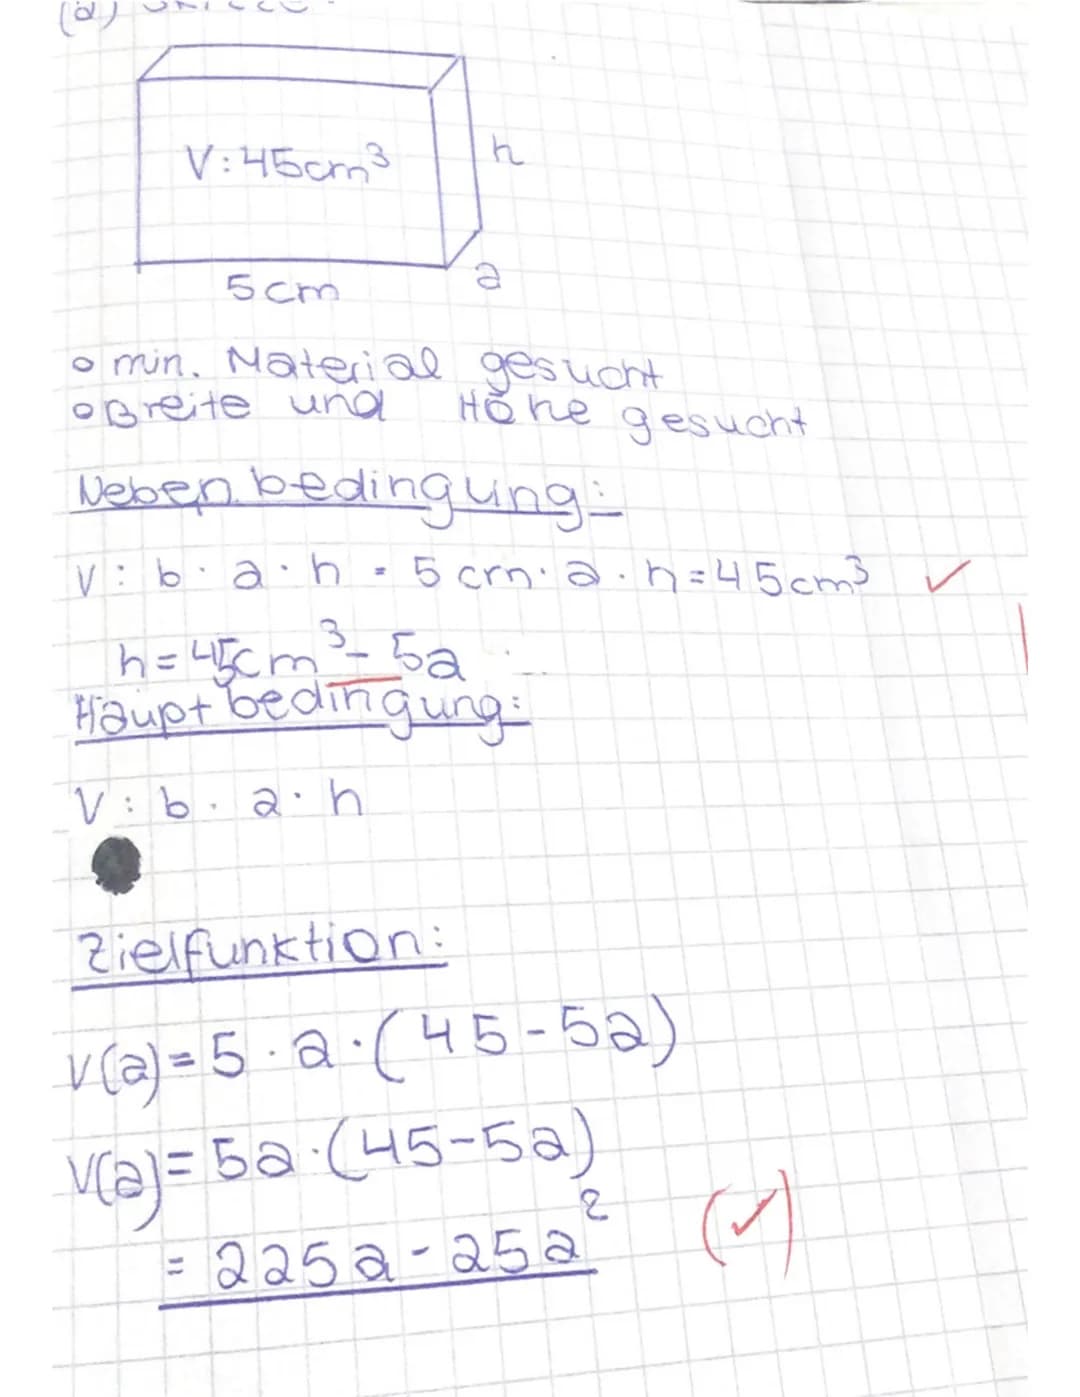 (a)
V: 45cm³
h
5cm
a
o min. Material gesucht
o Breite und Höhe gesucht
Nebenbedingung:
V: b · a · h = 5 cm · a · h = 45cm³ ✓
h = 45cm³ - 5a
Hauptbedingung:
V: b · a · h
Zielfunktion:
V(a) = 5 · a · (45-5a)
V(a) = 5a · (45-5a)
= 225a - 25a² (✓)